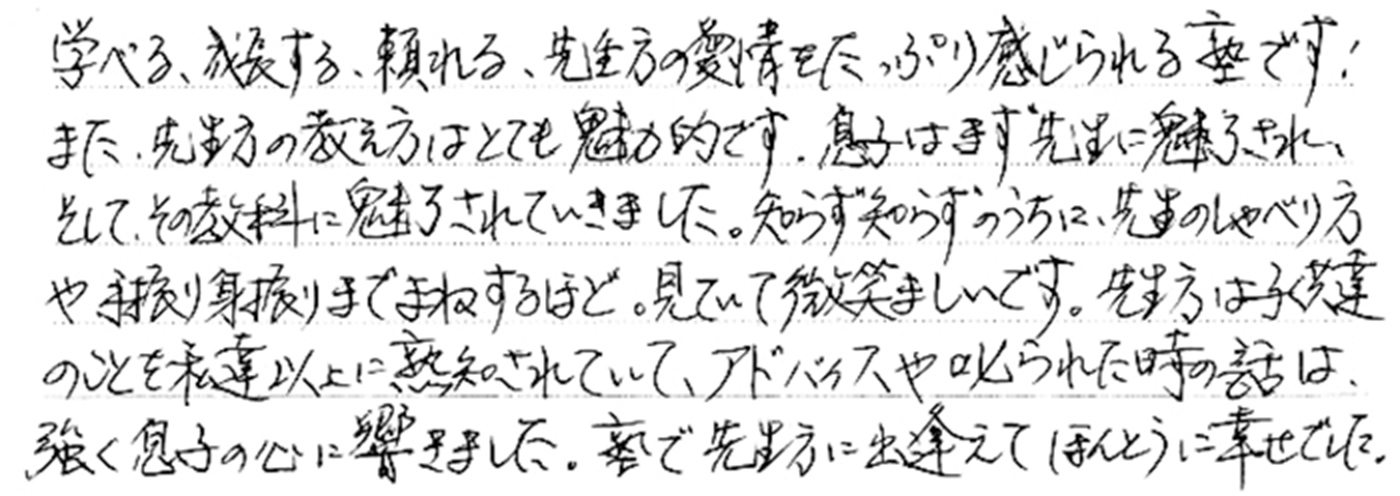 学べる、成長する、頼れる、先生方の愛情をたっぷり感じられる塾です!
また、先生方の教え方はとても魅力的です。息子はまず先生に魅了され、
そして、その教科に魅了されていきました。知らず知らずのうちに、先生のしゃべり方
や手振り身振りまでまねするほど。見ていて微笑ましいです。先生方は子供達
のことを私達以上に熟知されていて、アドバイスや叱られた時の話は、
強く息子の心に響きました。塾で先生方に出逢えてほんとうに幸せでした。